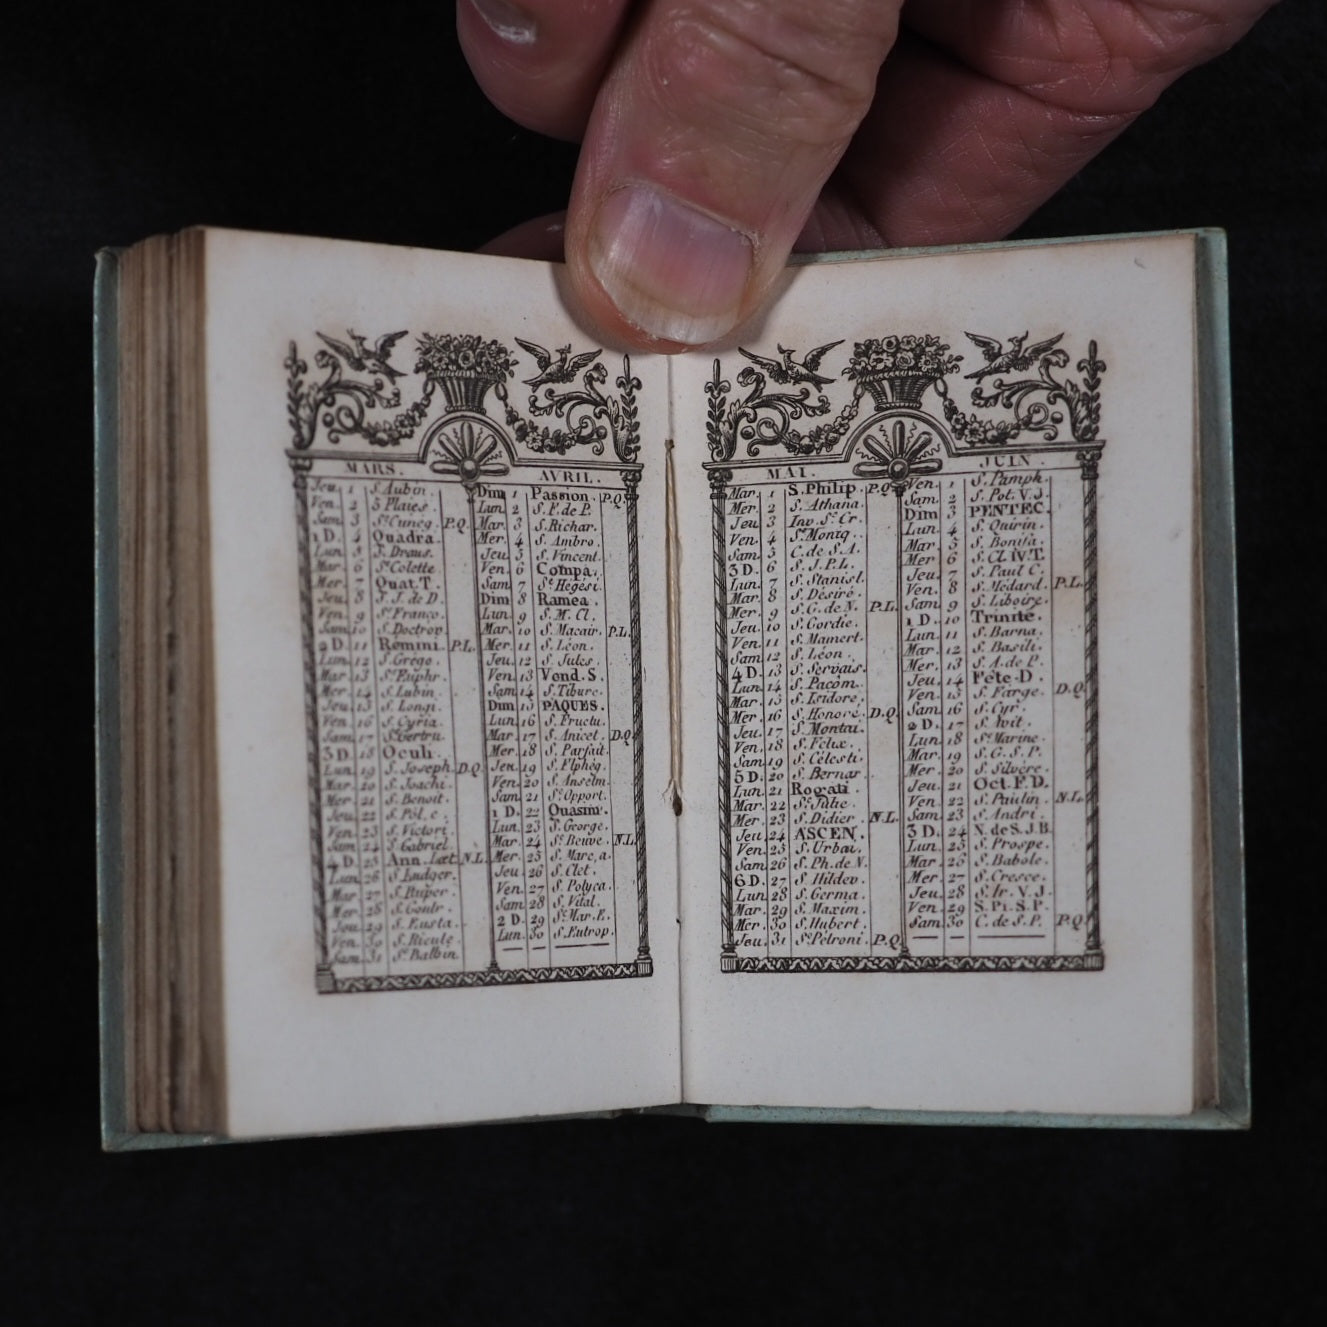 MARS.
Jeu. 1 S. Aubin.
Ven. 2 5 Plaies.
Sam. 3 Ste Cunég. P.Q.
1 D. 4 Quadra.
Lun. 5 S. Draus.
Mar. 6 Ste Colette
Mer. 7 Quat. T.
Jeu. 8 S. J. de D.
Ven. 9 Ste Franco.
Sam. 10 S. Doctrov.
2 D. 11 Remini. P.L.
Lun. 12 S. Grégo.
Mar. 13 Ste Euphr.
Mer. 14 S. Lubin.
Jeu. 15 S. Longi.
Ven. 16 S. Cyria.
Sam. 17 Ste Gertru.
3 D. 18 Oculi.
Lun. 19 S. Joseph. D.Q.
Mar. 20 S. Joachi.
Mer. 21 S. Benoit.
Jeu. 22 S. Pol. é.
Ven. 23 S. Victori.
Sam. 24 S. Gabriel.
4 D. 25 Ann. Læt. N.L.
Lun. 26 S. Ludger.
Mar. 27 S. Ruper.
Mer. 28 S. Gontr.
Jeu. 29 S. Eusta.
Ven. 30 S. Rieule
Sam. 31 S. Balbin.
AVRIL.
Dim. 1 Passion. P.Q.
Lun. 2 S. F. de P.
Mar. 3 S. Richar.
Mer. 4 S. Ambro.
Jeu. 5 S. Vincent.
Ven. 6 Compa.
Sam. 7 Ste Hégési.
Dim. 8 Ramea.
Lun. 9 S. M. Cl.
Mar. 10 S. Macair. P.L.
Mer. 11 S. Léon.
Jeu. 12 S. Jules.
Ven. 13 Vend. S.
Sam. 14 S. Tiburc.
Dim. 15 PAQUES.
Lun. 16 S. Fructu.
Mar. 17 S. Anicet. D.Q.
Mer. 18 S. Parfait.
Jeu. 19 S. Elphég.
Ven. 20 S. Anselm.
Sam. 21 Ste Opport.
1 D. 22 Quasim.
Lun. 23 S. George.
Mar. 24 Ste Beuve. N.L.
Mer. 25 S. Marc, a.
Jeu. 26 S. Clet.
Ven. 27 S. Polyca.
Sam. 28 S. Vital.
2 D. 29 Ste Mar. E.
Lun. 30 S. Eutrop.
MAI.
Mar. 1 S. Philip. P.Q.
Mer. 2 S. Athana.
Jeu. 3 Inv. Ste Cr.
Ven. 4 Ste Moniq.
Sam. 5 C. de S. A.
3 D. 6 S. J. P. L.
Lun. 7 S. Stanisl.
Mar. 8 S. Désiré.
Mer. 9 S. G. de N. P.L.
Jeu. 10 S. Gordie.
Ven. 11 S. Mamert.
Sam. 12 S. Léon.
4 D. 13 S. Servais.
Lun. 14 S. Pacom.
Mar. 15 S. Isidore.
Mer. 16 S. Honoré. D.Q.
Jeu. 17 S. Montai.
Ven. 18 S. Félix.
Sam. 19 S. Célesti.
5 D. 20 S. Bernar.
Lun. 21 Rogati.
Mar. 22 Ste Julie.
Mer. 23 S. Didier. N.L.
Jeu. 24 ASCEN.
Ven. 25 S. Urbai.
Sam. 26 S. Ph. de N.
6 D. 27 S. Hildev.
Lun. 28 S. Germa.
Mar. 29 S. Maxim.
Mer. 30 S. Hubert.
Jeu. 31 Ste Pétroni. P.Q.
JUIN.
Ven. 1 S. Pamph.
Sam. 2 S. Pot. V. J.
Dim. 3 PENTEC.
Lun. 4 S. Quirin.
Mar. 5 S. Bonifa.
Mer. 6 S. Cl. IV. T.
Jeu. 7 S. Paul C.
Ven. 8 S. Médard. P.L.
Sam. 9 S. Liboire.
1 D. 10 Trinité.
Lun. 11 S. Barna.
Mar. 12 S. Basili.
Mer. 13 S. A. de P.
Jeu. 14 Fête-D.
Ven. 15 S. Farge. D.Q.
Sam. 16 S. Cyr.
2 D. 17 S. Avit.
Lun. 18 Ste Marine.
Mar. 19 S. G. S. P.
Mer. 20 S. Silvère.
Jeu. 21 Oct. F. D.
Ven. 22 S. Paulin. N.L.
Sam. 23 S. Andri.
3 D. 24 N. de S. J. B.
Lun. 25 S. Prospe.
Mar. 26 S. Babole.
Mer. 27 S. Cresce.
Jeu. 28 S. Ir. V. J.
Ven. 29 S. Pi. S. P.
Sam. 30 C. de S. P. P.Q.